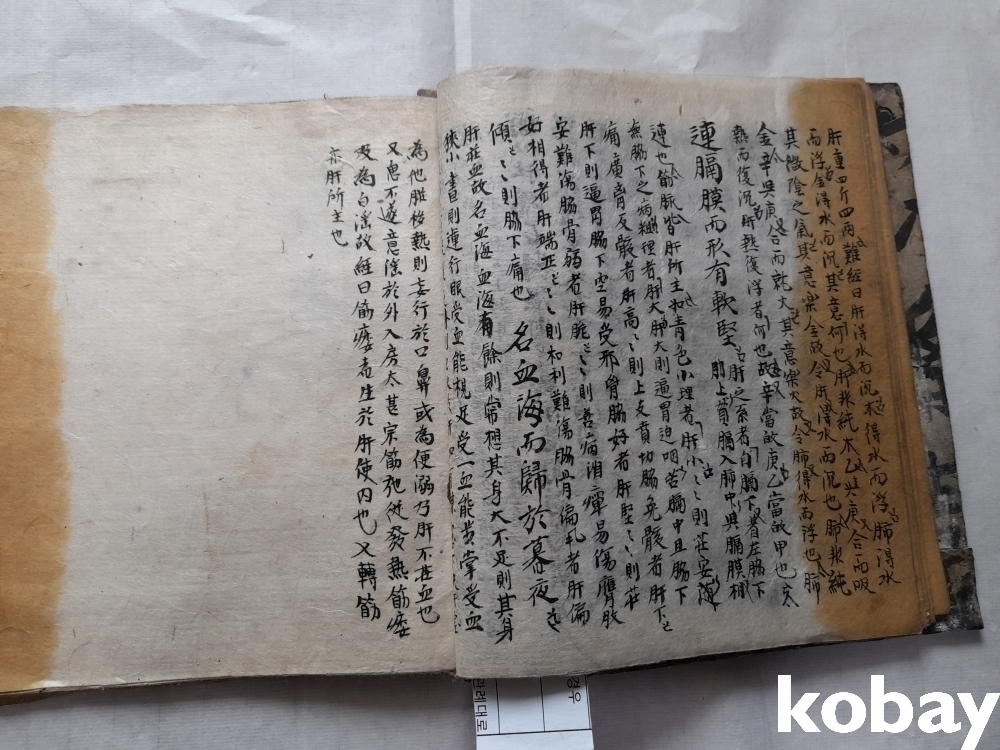 肝重四斤四兩難經曰肝得水而沉木得水而浮肺得水
而浮金得水而沉其意何也肝非純木乙與庚合而吸
其微陰之氣其意樂金故令肝得水而沉也肺非純
金辛與庚合而就火其意樂火故令肺得水而浮也肺
熱而復沉肝熱復浮者何也故辛當故庚乙當故甲也
連膈膜而形有軟堅 肝之系者自膈下着左脇下
上賁膈入肺中與膈膜相
連也筋脈皆肝所主和靑色小理者肝小〻則莊安
無脇下之病粗理者肝大肺大則逼胃迫咽苦膈中且脇下
痛廣育反骸者肝高〻則上支賁切脇免骸者肝下
肝下則逼胃脇下空易受邪脅脇好者肝堅〻則莊
安難傷脇骨弱者肝脆〻則善病泪癉易傷膺股
好相得者肝端正〻則和利難傷脇骨偏札者肝偏
傾〻則脇下痛也 名血海而歸於慕夜
肝莊血故名血海血海有餘則常想其身大不足則其身
狹小 書則運行眼受血能視足受一血能步掌受血
為他脏後熱則妄行於口鼻或為便溺乃肝不莊血也
又思不遂意滛於外入房太甚宗筋弛從發熱筋痿
及為白滛故經曰筋痿者生於肝使內也又轉筋
亦肝所主也
관례대로
경우
kobay